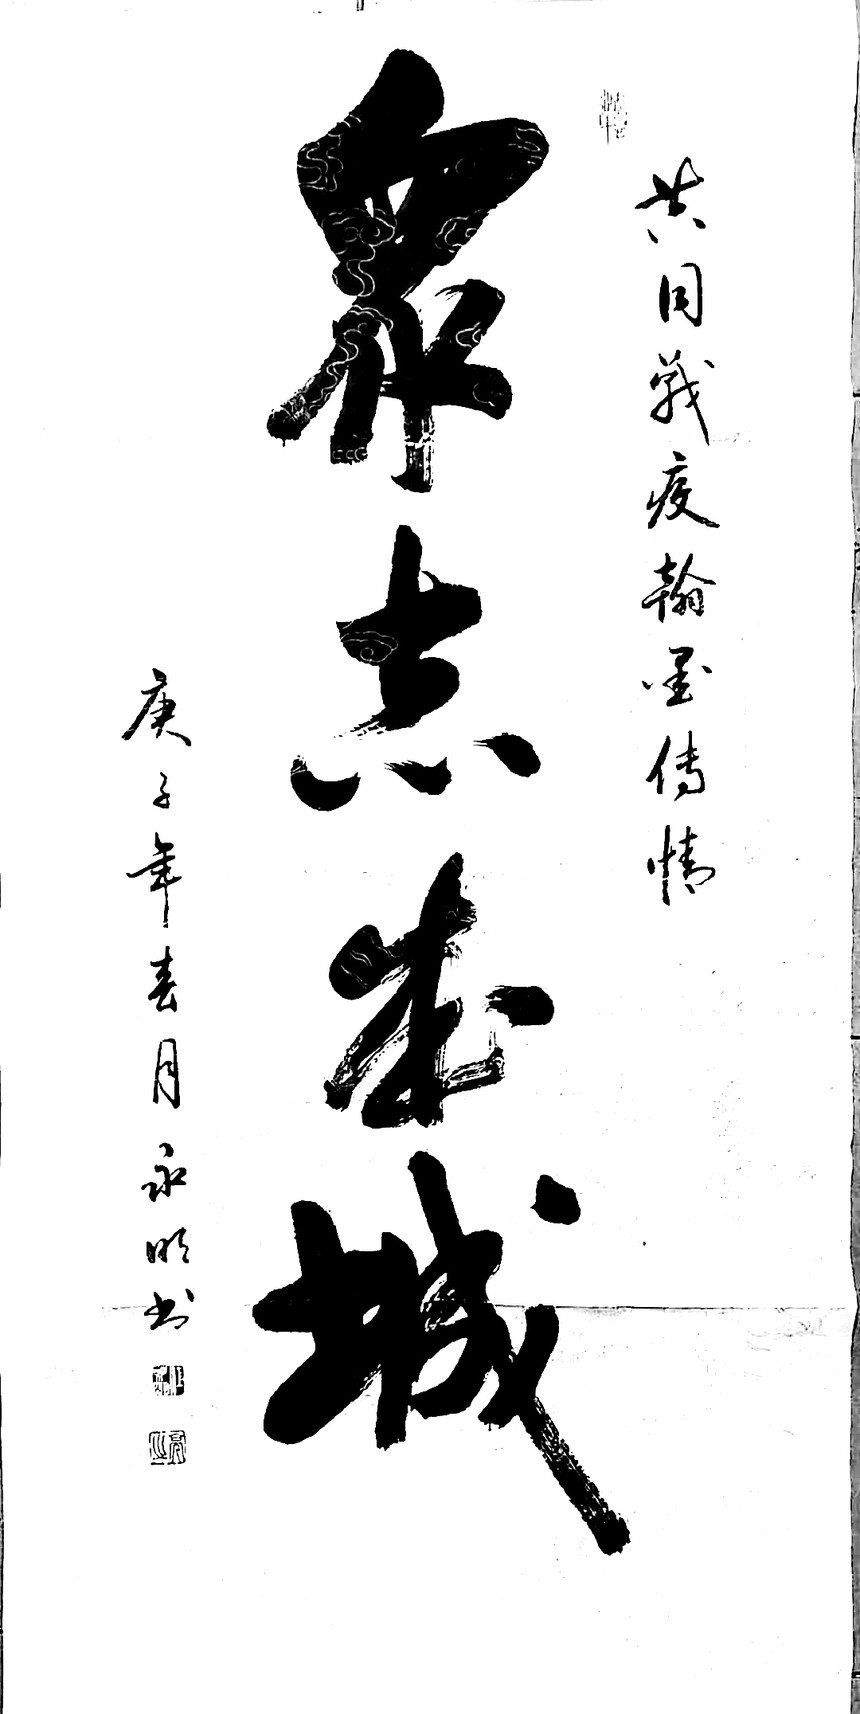 共同戰疫翰墨传情
众志成城
庚子年春月永明书